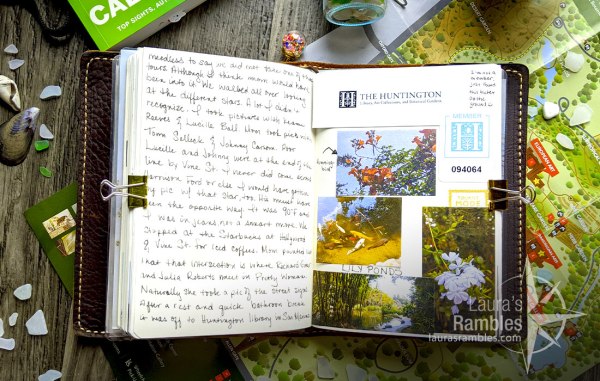 CAL
TOP SIGHTS, AUT
needless to say we did not take one of the
tours. Although I think mom would have
been into it. We walked all over looking
at the different stars. A lot I didn't
recognize. I took pictures with Keanu
Reeves & Lucille Ball. Mom took pics with
Tom Selleck & Johnny Carson. Poor
Lucille and Johnny were at the end of the
line by Vine St. I never did come across
Harrison Ford or else I would have gotten
a pic of that star, too. He must have
been the opposite way. It was 90° and
I was in jeans, not a smart move. We
stopped at the Starbucks at Hollywood
& Vine St. for iced coffees. Mom pointed out
that that intersection is where Richard Gere
and Julia Roberts meet in Pretty Woman.
Naturally she took a pic of the street signs.
After a rest and quick bathroom break
it was off to Huntington library in San Marino.
THE HUNTINGTON
Library, Art Collections, and Botanical Gardens
I'm not a
member,
just found
this sticker
on the
ground
MEMBER
094064
LILY PONDS
Laura's
Rambles
laurasrambles.com